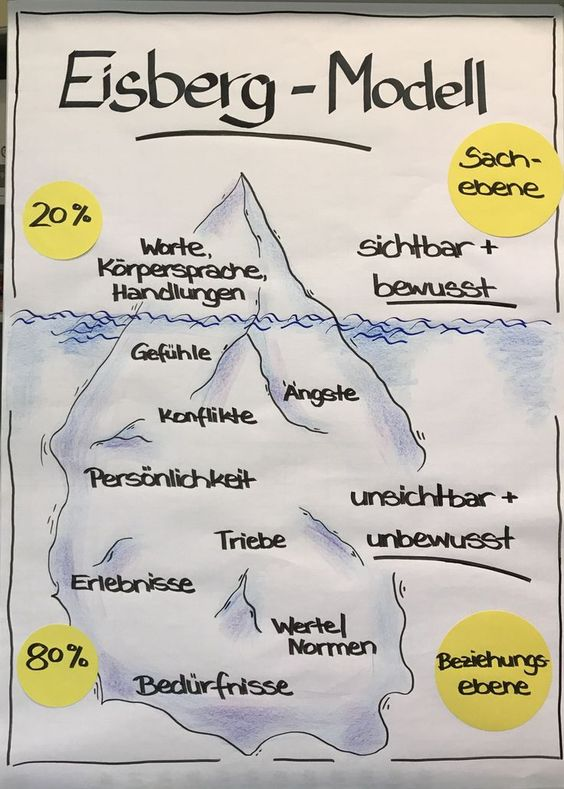 Eisberg - Modell
Sach-
ebene
20%
Worte,
Körpersprache,
Handlungen
sichtbar +
bewusst
Gefühle
Ängste
Konflikte
Persönlichkeit
unsichtbar +
unbewusst
Triebe
Erlebnisse
Werte/
Normen
80%
Bedürfnisse
Beziehungs-
ebene